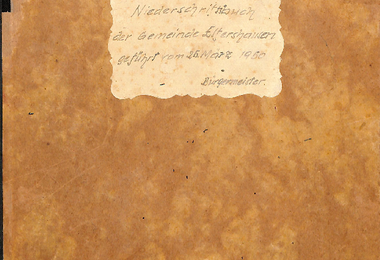 Niederschriftbuch
der Gemeinde Eltershausen
geführt vom 26. März 1950
Bürgermeister.